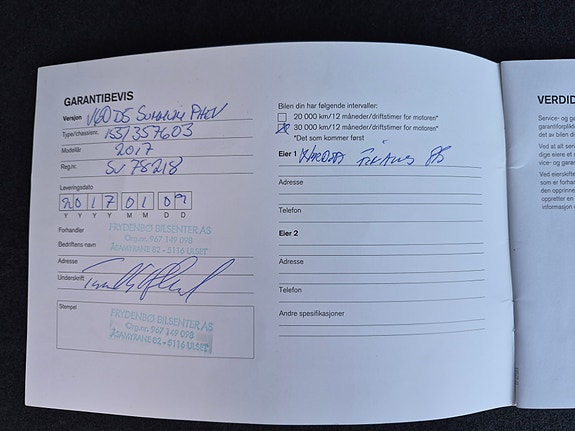 GARANTIBEVIS
Versjon V60 D5 Summum PHEV
Type/chassisnr. 155/357603
Modellår 2017
Reg.nr. SV 78218
Leveringsdato
2017 01 09
Y Y Y Y M M D D
Forhandler FRYDENBØ BILSENTER AS
Org.nr. 967 149 098
Bedriftens navn ÅSAMYRANE 82 - 5116 ULSET
Adresse
Underskrift
Stempel FRYDENBØ BILSENTER AS
Org.nr. 967 149 098
ÅSAMYRANE 82 - 5116 ULSET
Bilen din har følgende intervaller:
20 000 km/12 måneder/driftstimer for motoren*
30 000 km/12 måneder/driftstimer for motoren*
*Det som kommer først
Eier 1 AS
Adresse
Telefon
Eier 2
Adresse
Telefon
Andre spesifikasjoner
VERDID
Service- og ge
garantiforplikt
det av bilen di
Ved at alt serv
dige eiere et s
vice- og garant
Ved eierskifte
som er forhan
den oppinne
oppretter en
informasjon v